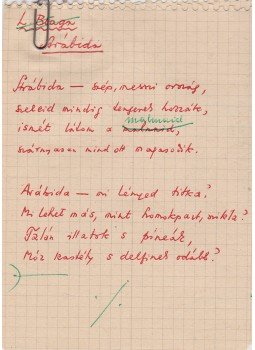 L. Blaga
Arábida
Arábida — szép, messzi ország,
szeleid mindig tengerek hozzák,
malmaid
ismét látom a malmaid,
szárnyasan mind ott magasodik.
Arábida — mi lényed titka?
Mi lehet más, mint homokpart, szikla?
Talán illatok s píneák,
Mór kastély s delfinek odább?